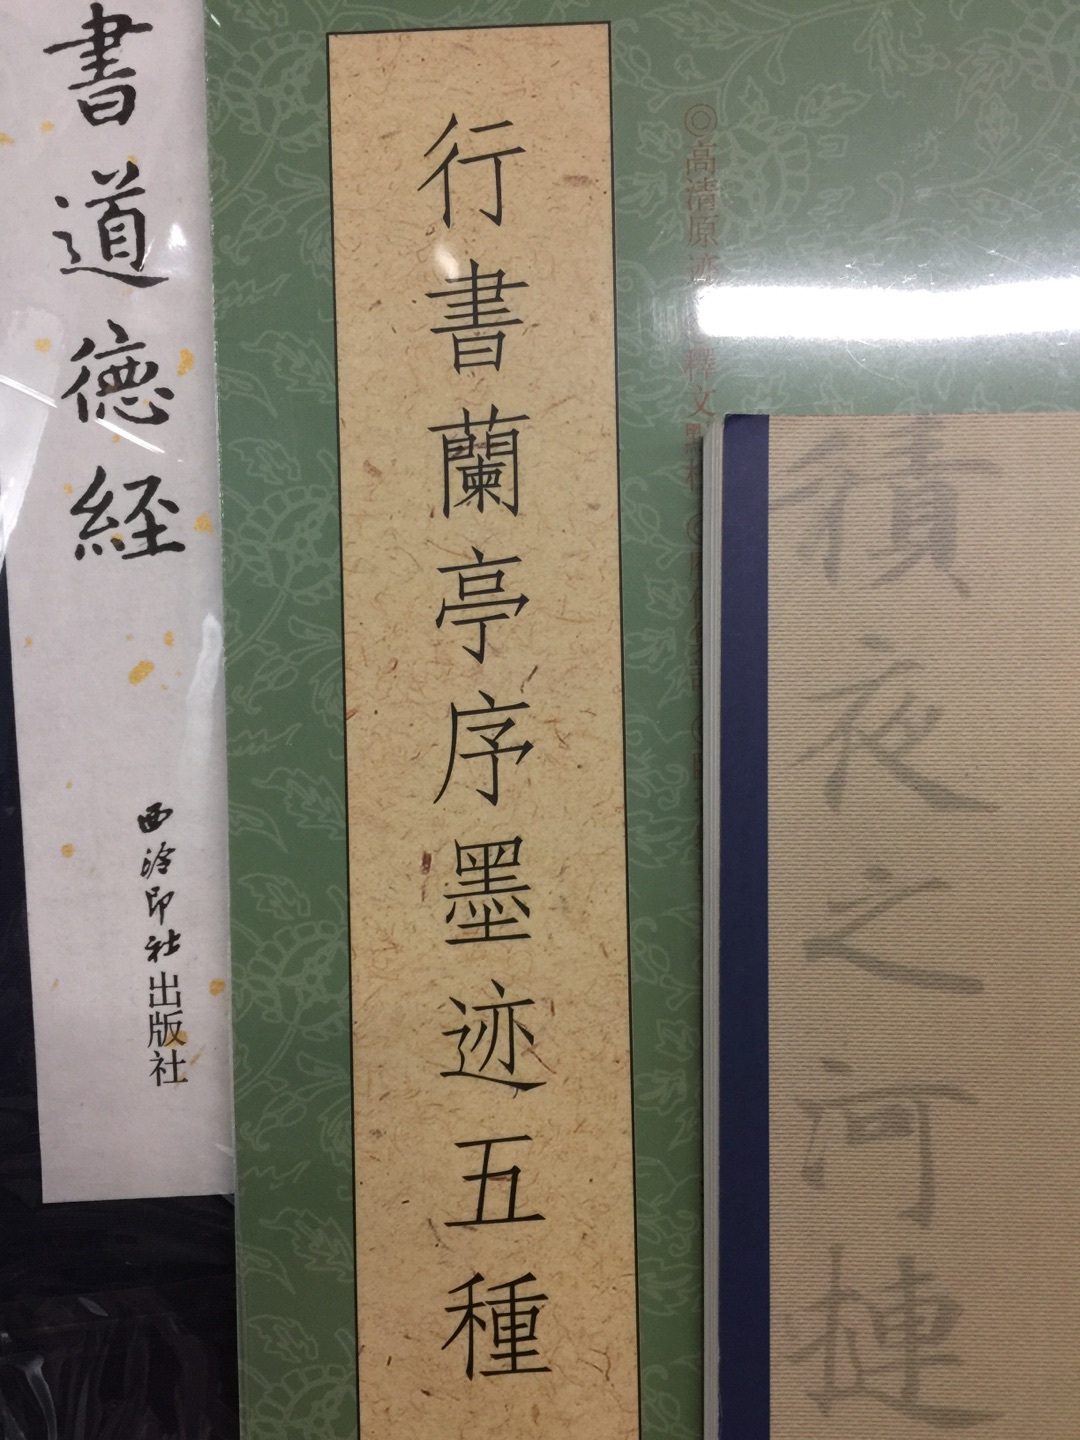 書道德經
西泠印社出版社
行書蘭亭序墨迹五種
◎高清原迹
釋文
積夜之河